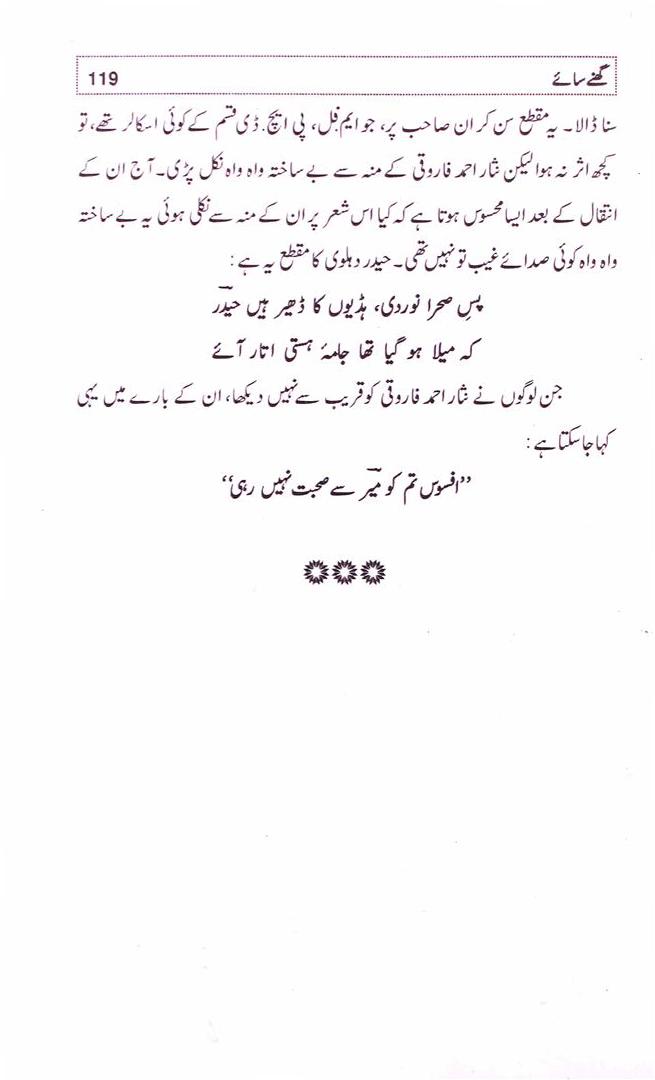 گھنے سائے 119
سنا ڈالا۔ یہ مقطع سن کر ان صاحب پر، جو ایم فِل، پی ایچ. ڈی قسم کے کوئی اسکالر تھے، تو
کچھ اثر نہ ہوا لیکن نثار احمد فاروقی کے منہ سے بے ساختہ واہ واہ نکل پڑی۔ آج ان کے
انتقال کے بعد ایسا محسوس ہوتا ہے کہ کیا اس شعر پر ان کے منہ سے نکلی ہوئی یہ بے ساختہ
واہ واہ کوئی صدائے غیب تو نہیں تھی۔ حیدر دہلوی کا مقطع یہ ہے :
پسِ صحرا نوردی، ہڈیوں کا ڈھیر ہیں حیدؔر
کہ میلا ہو گیا تھا جامۂ ہستی اتار آئے
جن لوگوں نے نثار احمد فاروقی کو قریب سے نہیں دیکھا، ان کے بارے میں یہی
کہا جاسکتا ہے :
’’افسوس تم کو میؔر سے صحبت نہیں رہی‘‘